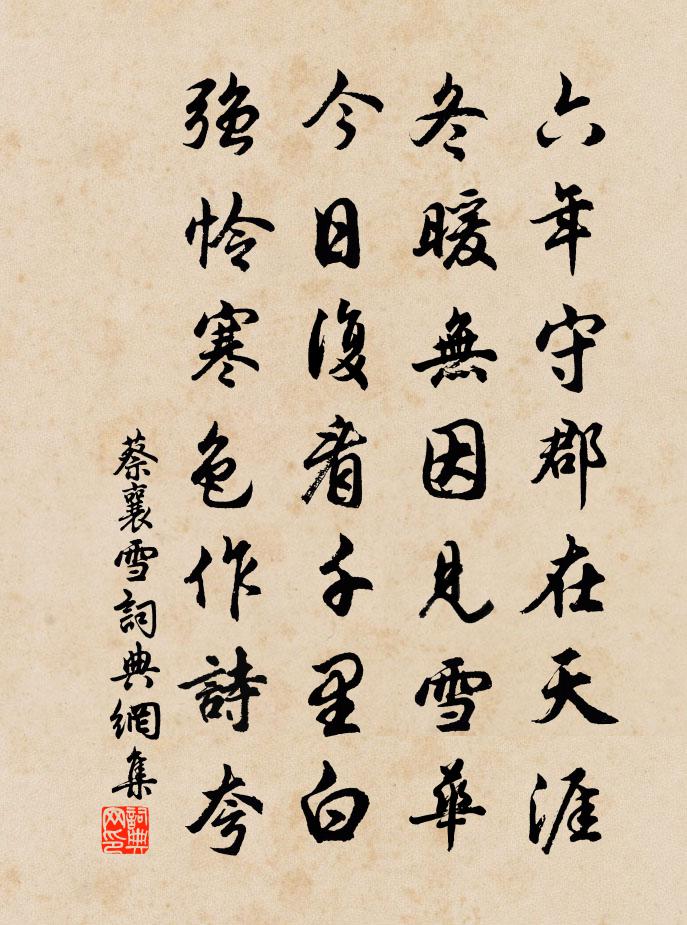 六年守郡在天涯
冬暖無因見雪華
今日復看千里白
強怜寒色作詩夸
蔡襄雪詞典網集
詞典网印